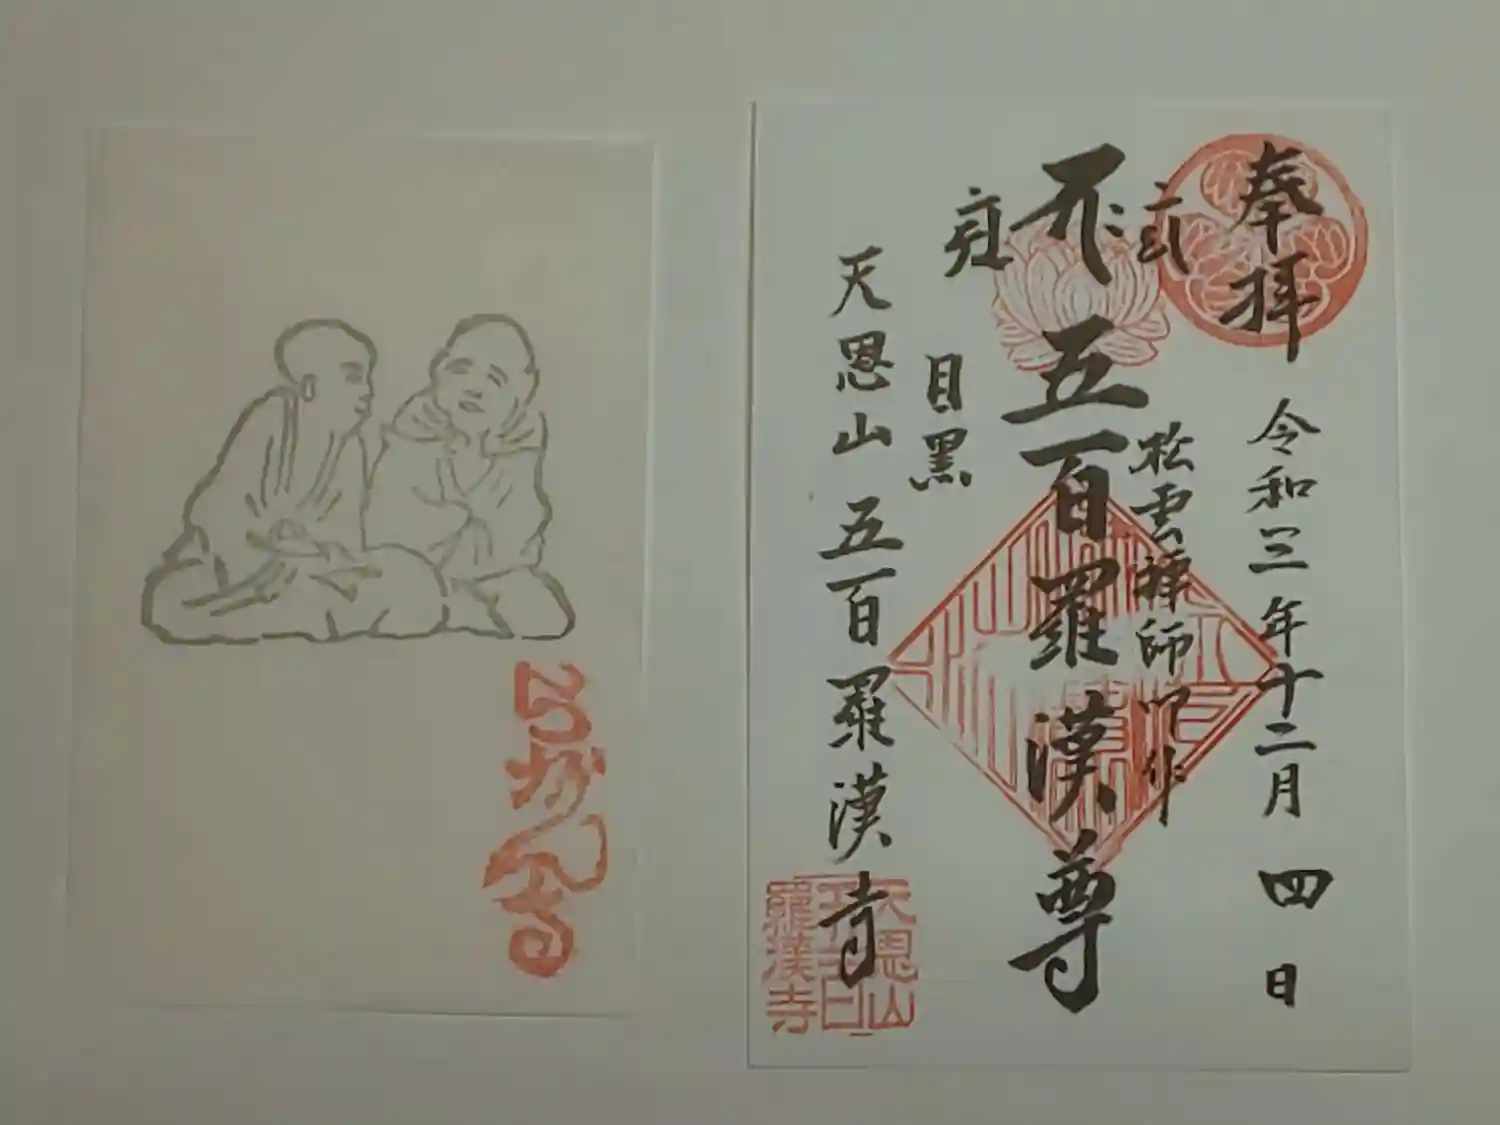 奉拝
令和三年十二月
四日
松雲禅師
作
五百羅漢尊
目黒
天恩山
五百羅漢寺
天恩山
五百
羅漢寺
らかんさん